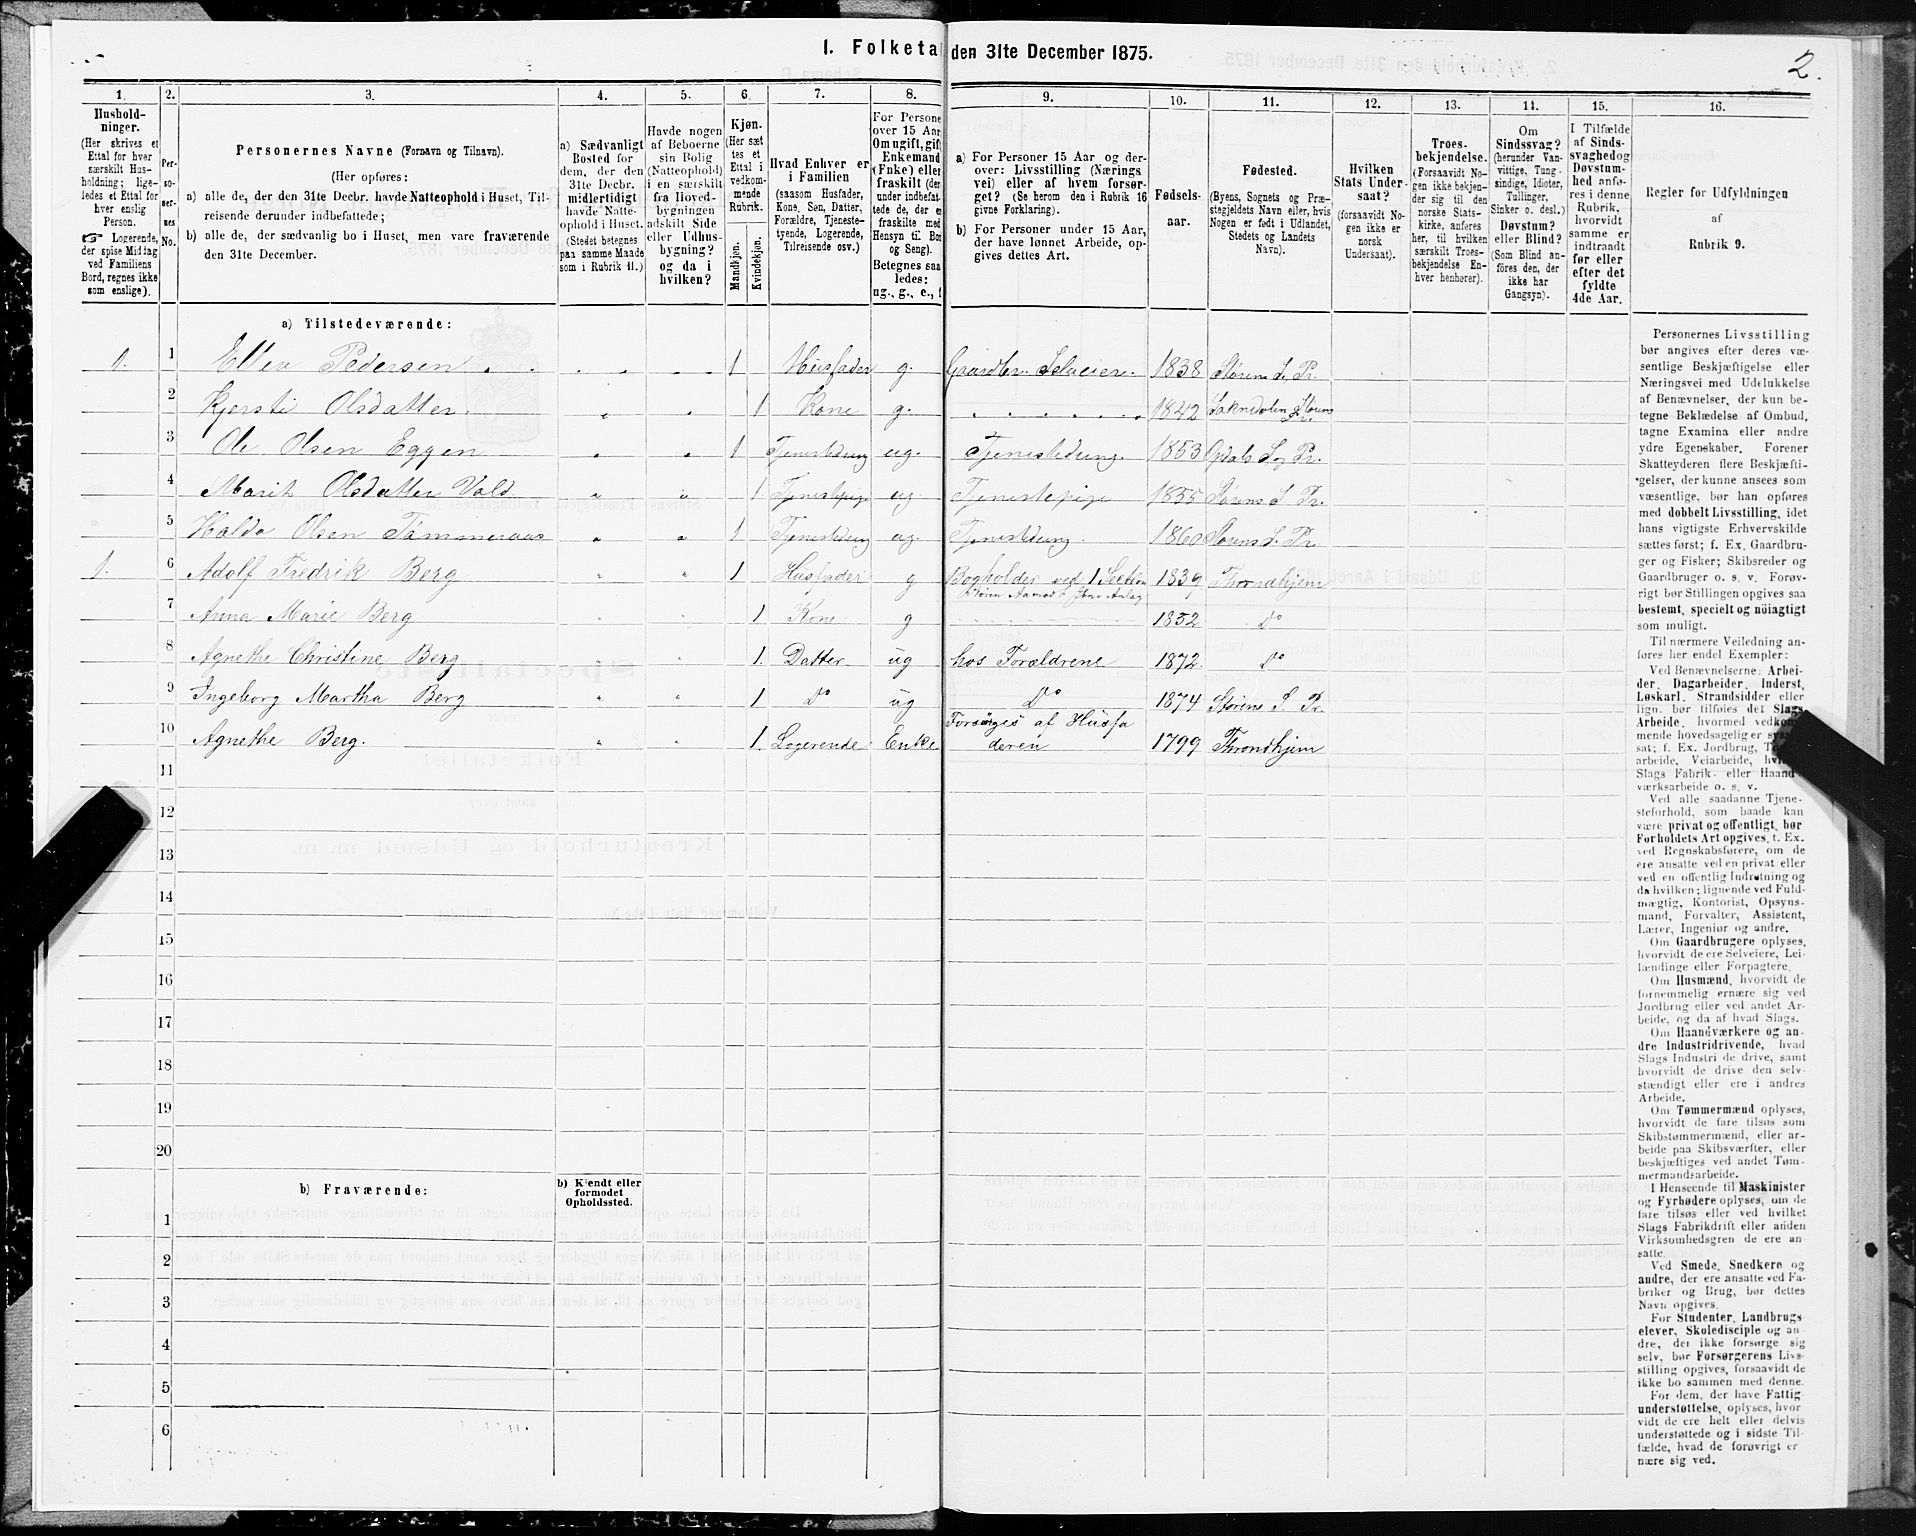 1. Folketa den 31te December 1875.
2.
1. 2. 3. 4. 5. 6. 7. 8. 9. 10. 11. 12. 13. 14. 15. 16.
Hushold-
ninger.
(Her skrives et
Ettal for hver
særskilt Hus-
holdning; lige-
ledes et Ettal for
hver enslig
Person.
☞ Logerende,
der spise Middag
ved Familiens
Bord, regnes ikke
som enslige).
Per-
so-
ner-
nes
No.
Personernes Navne (Fornavn og Tilnavn).
(Her opføres:
a) alle de, der den 31te Decbr. havde Natteophold i Huset, Til-
reisende derunder indbefattede;
b) alle de, der sædvanlig bo i Huset, men vare fraværende
den 31te December.
a) Sædvanligt
Bosted for
dem, der den
31te Decbr.
midlertidigt
havde Natte-
ophold i Huset.
(Stedet betegnes
paa samme Maade
som i Rubrik 11.)
Havde nogen
af Beboerne
sin Bolig
(Natteophold)
i en særskilt
fra Hoved-
bygningen
adskilt Side
eller Udhus-
bygning?
og da i
hvilken?
Kjøn.
(Her sæt
tes et
Ettal i
vedkom-
mende
Rubrik.
Mandkjøn.
Kvindekjøn.
Hvad Enhver er
i Familien
(saasom Husfader,
Kone, Søn, Datter,
Forældre, Tjeneste-
tyende, Logerende,
Tilreisende osv.)
For Persone
over 15 Aar
Om ugift, gif
Enkemand
(Enke) elle
fraskilt (der
under indbefat
tede de, der e
fraskilte med
Hensyn til Bo
og Seng).
Betegnes saa
ledes:
ug., g., e., f
a) For Personer 15 Aar og der-
over: Livsstilling (Nærings
vei) eller af hvem forsør-
get? (Se herom den i Rubrik 16
givne Forklaring).
b) For Personer under 15 Aar,
der have lønnet Arbeide, op-
gives dettes Art.
Fødsels-
aar.
Fødested.
(Byens, Sognets og Præ-
stegjeldets Navn eller, hvis
Nogen er født i Udlandet,
Stedets og Landets
Navn).
Hvilken
Stats Under-
saat?
(forsaavidt No-
gen ikke er
norsk
Undersaat).
Troes-
bekjendelse.
(Forsaavidt No-
gen ikke bekjen-
der sig til den
norske Stats-
kirke, anføres
her, til hvilken
særskilt Troes-
bekjendelse En-
hver henhører).
Om
Sindssvag?
(herunder Van-
vittige, Tung-
sindige, Idioter,
Tullinger,
Sinker o. desl.)
Døvstum?
eller Blind?
(Som Blind an-
føres den, der
ikke har
Gangsyn).
I Tilfælde
af Sinds-
svaghedog
Døvstum-
hed anfø-
res i denne
Rubrik,
hvorvidt
samme er
indtraadt
før eller
efter det
fyldte
4de Aar.
Regler for Udfyldningen
af
Rubrik 9.
a) Tilstedeværende:
1. 1 Ellev Pedersen 1 Husfader g. Gaardbr. Selveier. 1838 Støren S. Pr.
2 Kjersti Olsdatter 1 Kone g. 1842 Støren Pr.
3 Ole Olsen Eggen 1 Tjenestedreng ug. Tjenestedreng. 1853 Opdals S. og Pr.
4 Marit Olsdatter Vold 1 Tjenestepige ug Tjenestepige 1855 Størens S. Pr.
5 Haldo Olsen Tømmeraas 1 Tjenestedreng ug. Tjenestedreng. 1860 Størens S. Pr.
1. 6 Adolf Fredrik Berg 1 Husfader g Bogholder ved 1 Section 1839 Throndhjem
Støren Aamod Jbne Anlæg
7 Anna Marie Berg 1 Kone g 1852 Do
8 Agnethe Christine Berg 1 Datter ug hos Forældrene 1872. Do
9 Ingeborg Martha Berg 1 Do ug Do 1874 Størens S. Pr.
10 Agnethe Berg. 1. Logerende Enke Forsørges af Husfa
deren 1799 Throndhjem
11
12
13
14
15
16
17
18
19
20
b) Fraværende:
b) Kjendt eller
formodet
Opholdssted.
1
2
3
4
5
6
Personernes Livsstilling
bør angives efter deres væ-
sentlige Beskjæftigelse eller
Næringsvei med Udelukkelse
af Benævnelser, der kun be-
tegne Beklædelse af Ombud,
tagne Examina eller andre
ydre Egenskaber. Forener
Skatteyderen flere Beskjæfti-
gelser, der kunne ansees som
væsentlige, bør han opføres
med dobbelt Livsstilling, idet
hans vigtigste Erhvervskilde
sættes først; f. Ex. Gaardbru-
ger og Fisker; Skibsreder og
Gaardbruger o. s. v. Forøv-
rigt bør Stillingen opgives saa
bestemt, specielt og nöiagtigt
som muligt.
Til nærmere Veiledning an-
føres her endel Exempler:
Ved Benævnelserne: Arbei-
der, Dagarbeider, Inderst,
Løskarl, Strandsidder eller
lign. bør tilføies det Slags
Arbeide, hvormed vedkom-
mende hovedsagelig er sys
sat; f. Ex. Jordbrug, To
arbeide, Veiarbeide, hv
Slags Fabrik- eller Haand-
værksarbeide o. s. v.
Ved alle saadanne Tjene-
steforhold, som baade kan
være privat og offentligt, bør
Forholdets Art opgives, t. Ex.
ved Regnskabsførere, om de
ere ansatte ved en privat eller
ved en offentlig Indretning og
da hvilken; lignende ved Fuld-
mægtig, Kontorist, Opsyns-
mand, Forvalter, Assistent,
Lærer, Ingeniør og andre.
Om Gaardbrugere oplyses,
hvorvidt de ere Selveiere, Lei-
lændinge eller Forpagtere.
Om Husmænd, hvorvidt de
fornemmelig ernære sig ved
Jordbrug eller ved andet Ar-
beide, og da af hvad Slags.
Om Haandværkere og an-
dre Industridrivende, hvad
Slags Industri de drive, samt
hvorvidt de drive den selv-
stændigt eller ere i andres
Arbeide.
Om Tømmermænd oplyses,
hvorvidt de fare tilsøs som
Skibstømmermænd, eller ar-
beide paa Skibsværfter, eller
beskjæftiges ved andet Tøm-
mermandsarbeide.
I Henseende til Maskinister
og Fyrbødere oplyses, om de
fare tilsøs eller ved hvilket
Slags Fabrikdrift eller anden
Virksomhedsgren de ere an-
satte.
Ved Smede, Snedkere og
andre, der ere ansatte ved Fa-
briker og Brug, bør dettes
Navn opgives.
For Studenter, Landbrugs-
elever, Skoledisciple og an-
dre, der ikke forsørge sig
selv, bør Forsørgerens Livs-
stilling opgives, forsaavidt de
ikke bo sammen med denne.
For dem, der have Fattig-
understøttelse, oplyses, hvor
vidt de ere helt eller delvis
understøttede og i sidste Til-
fælde, hvad de forøvrigt er
nære sig ved.